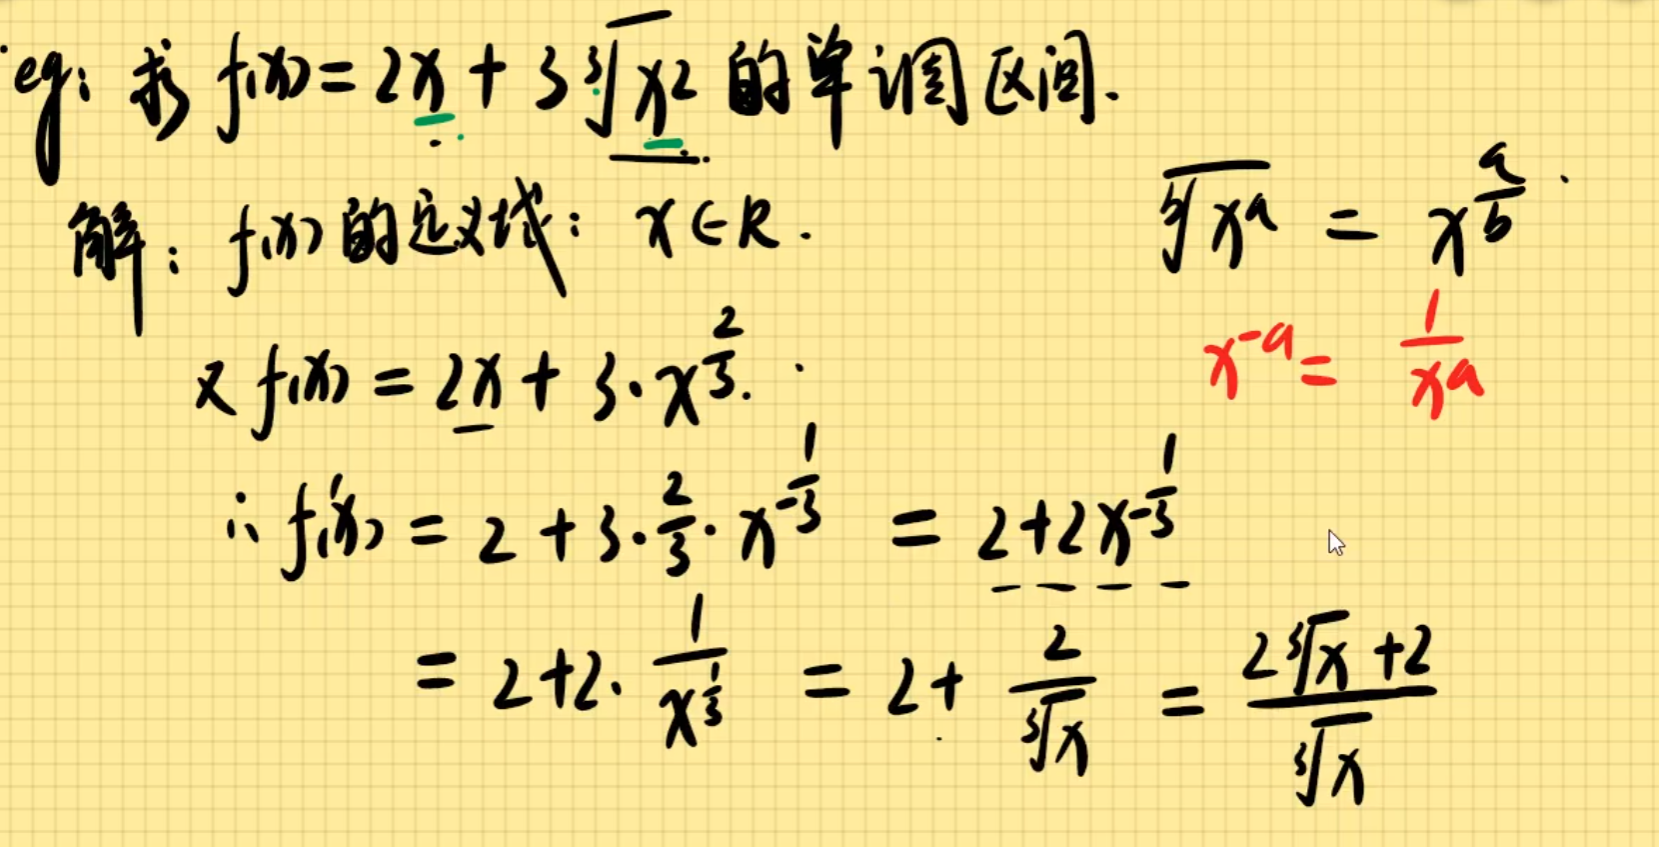 eg: 求 f(x) = 2x + 3∛x² 的单调区间.
解: f(x) 的定义域: x ∈ R.
ᵇ√xᵃ = x^(a/b).
又 f(x) = 2x + 3·x^(2/3).
x^(-a) = 1/xᵃ
∴ f'(x) = 2 + 3·2/3·x^(-1/3) = 2+2x^(-1/3)
= 2+2·1/x^(1/3) = 2+ 2/∛x = (2∛x +2)/∛x